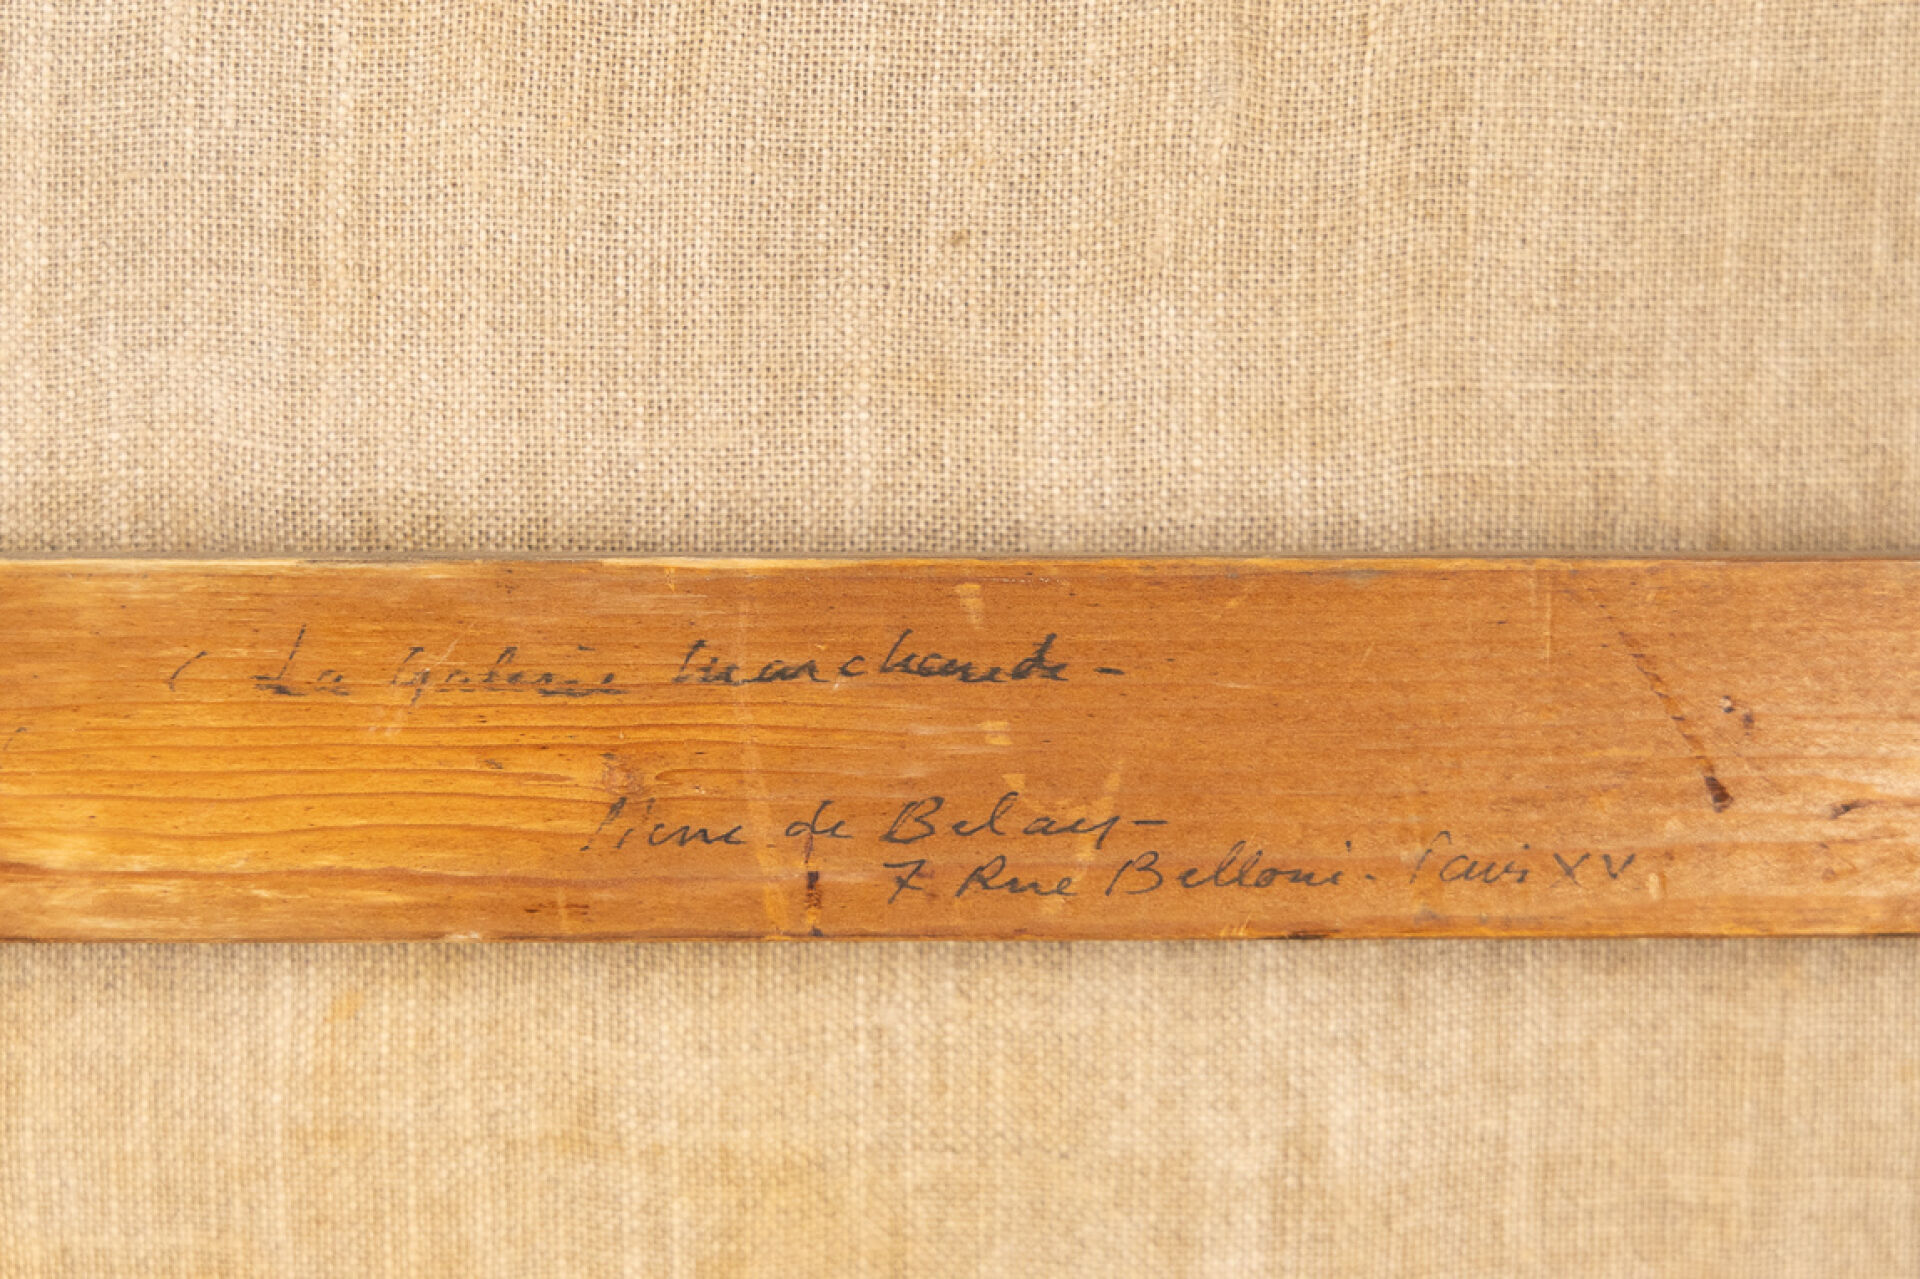 La Galerie marchande -
Pierre de Belay -
7 Rue Belloni. Paris XV